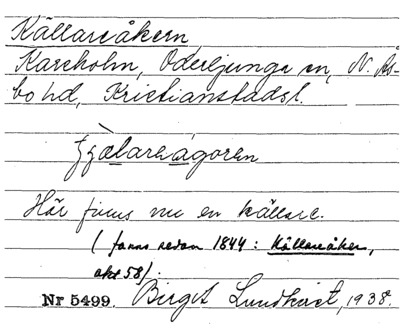 Källareåkern
Kareholm, Oderljunga sn, N. Ås-
bo hd, Kristianstads l.
Här finns nu en källare.
(fanns redan 1844: Källareåker,
akt 58).
Nr 5499. Birgit Lundkvist, 1938.